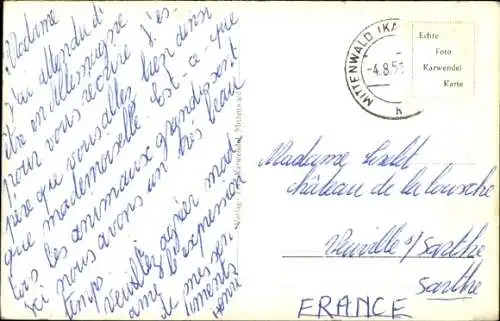 Madame
J'ai attendu d'
être en Allemagne
pour vous écrire J'es-
père que vous allez bien ainsi
que mademoiselle. Est-ce-que
tous les animaux grandissent
ici nous avons un très beau
temps
Veuillez agréer mad-
ame l'expression
de mes sen
timents
MITTENWALD (KA
-4.8.5
k
Echte
Foto
Karwendel
Karte
Madame
Château de la
Neuville s/ Sarthe
Sarthe
FRANCE